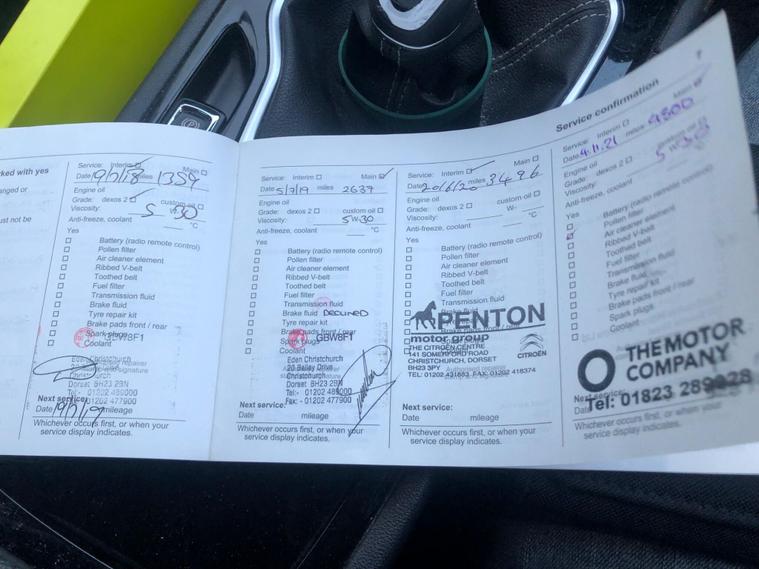 ked with yes
anged or
ust not be
Service: Interim Main
Date 19/7/18 miles 1359
Engine oil
Grade: dexos 2 custom oil
Viscosity: 5 W- 30
Anti-freeze, coolant °C
Yes
Battery (radio remote control)
Pollen filter
Air cleaner element
Ribbed V-belt
Toothed belt
Fuel filter
Transmission fluid
Brake fluid
Tyre repair kit
Brake pads front / rear
Spark plugs
Coolant
Eden Christchurch
Christchurch
Dorset BH23 2BN
Tel:- 01202 489000
Next service:
Date 19/7/19 mileage
Whichever occurs first, or when your
service display indicates.
Service: Interim Main
Date 5/7/19 miles 2637
Engine oil
Grade: dexos 2 custom oil
Viscosity: 5W30
Anti-freeze, coolant °C
Yes
Battery (radio remote control)
Pollen filter
Air cleaner element
Ribbed V-belt
Toothed belt
Fuel filter
Transmission fluid
Brake fluid DECLINED
Tyre repair kit
Brake pads front / rear
Spark plugs
Coolant
GBW8F1
Eden Christchurch
20 Bailey Drive
Christchurch
Dorset BH23 2BN
Tel:- 01202 489000
Fax:- 01202 477900
Next service:
Date mileage
Whichever occurs first, or when your
service display indicates.
Service: Interim Main
Date 20/6/20 miles 3496
Engine oil
Grade: dexos 2 custom oil
Viscosity: W-
Anti-freeze, coolant °C
Yes
Battery (radio remote control)
Pollen filter
Air cleaner element
Ribbed V-belt
Toothed belt
Fuel filter
Transmission fluid
PENTON
motor group
THE CITROËN CENTRE
141 SOMERFORD ROAD
CHRISTCHURCH, DORSET
BH23 3PY
TEL: 01202 431653 FAX: 01202 418374
CITROËN
Next service:
Date mileage
Whichever occurs first, or when your
service display indicates.
Service confirmation
Service: Interim Main
Date 4.11.21 miles 4800
Engine oil
Grade: dexos 2 custom oil
Viscosity: 5 W-30
Anti-freeze, coolant °C
Yes
Battery (radio remote control)
Pollen filter
Air cleaner element
Ribbed V-belt
Toothed belt
Fuel filter
Transmission fluid
Brake fluid
Tyre repair kit
Brake pads front / rear
Spark plugs
Coolant
THE MOTOR
COMPANY
Tel: 01823 289928
Next service:
Date mileage
Whichever occurs first, or when your
service display indicates.